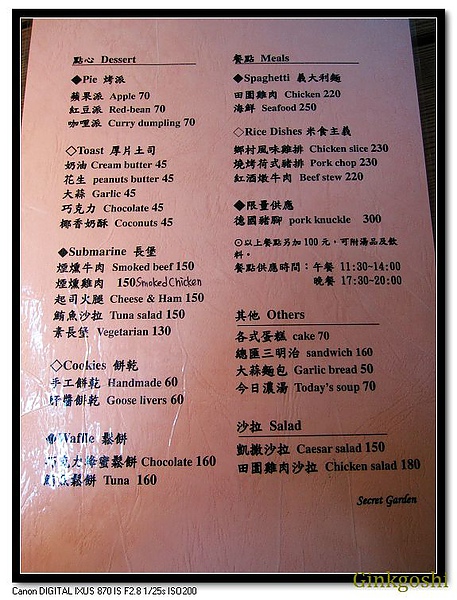 點心 Dessert
◆Pie 烤派
蘋果派 Apple 70
紅豆派 Red-bean 70
咖哩派 Curry dumpling 70
◇Toast 厚片土司
奶油 Cream butter 45
花生 peanuts butter 45
大蒜 Garlic 45
巧克力 Chocolate 45
椰香奶酥 Coconuts 45
◆Submarine 長堡
煙燻牛肉 Smoked beef 150
煙燻雞肉 150 Smoked Chicken
起司火腿 Cheese & Ham 150
鮪魚沙拉 Tuna salad 150
素長堡 Vegetarian 130
◇Cookies 餅乾
手工餅乾 Handmade 60
肝醬餅乾 Goose livers 60
◆Waffle 鬆餅
巧克力蜂蜜鬆餅 Chocolate 160
鮪魚鬆餅 Tuna 160
餐點 Meals
◆Spaghetti 義大利麵
田園雞肉 Chicken 220
海鮮 Seafood 250
◇Rice Dishes 米食主義
鄉村風味雞排 Chicken slice 230
燒烤荷式豬排 Pork chop 230
紅酒燉牛肉 Beef stew 220
◆限量供應
德國豬腳 pork knuckle 300
⊙以上餐點另加 100 元，可附湯品及飲
料。
餐點供應時間：午餐 11:30~14:00
晚餐 17:30~20:00
其他 Others
各式蛋糕 cake 70
總匯三明治 sandwich 160
大蒜麵包 Garlic bread 50
今日濃湯 Today's soup 70
沙拉 Salad
凱撒沙拉 Caesar salad 150
田園雞肉沙拉 Chicken salad 180
Secret Garden
Ginkgoshi
Canon DIGITAL IXUS 870 IS F2.8 1/25s ISO200